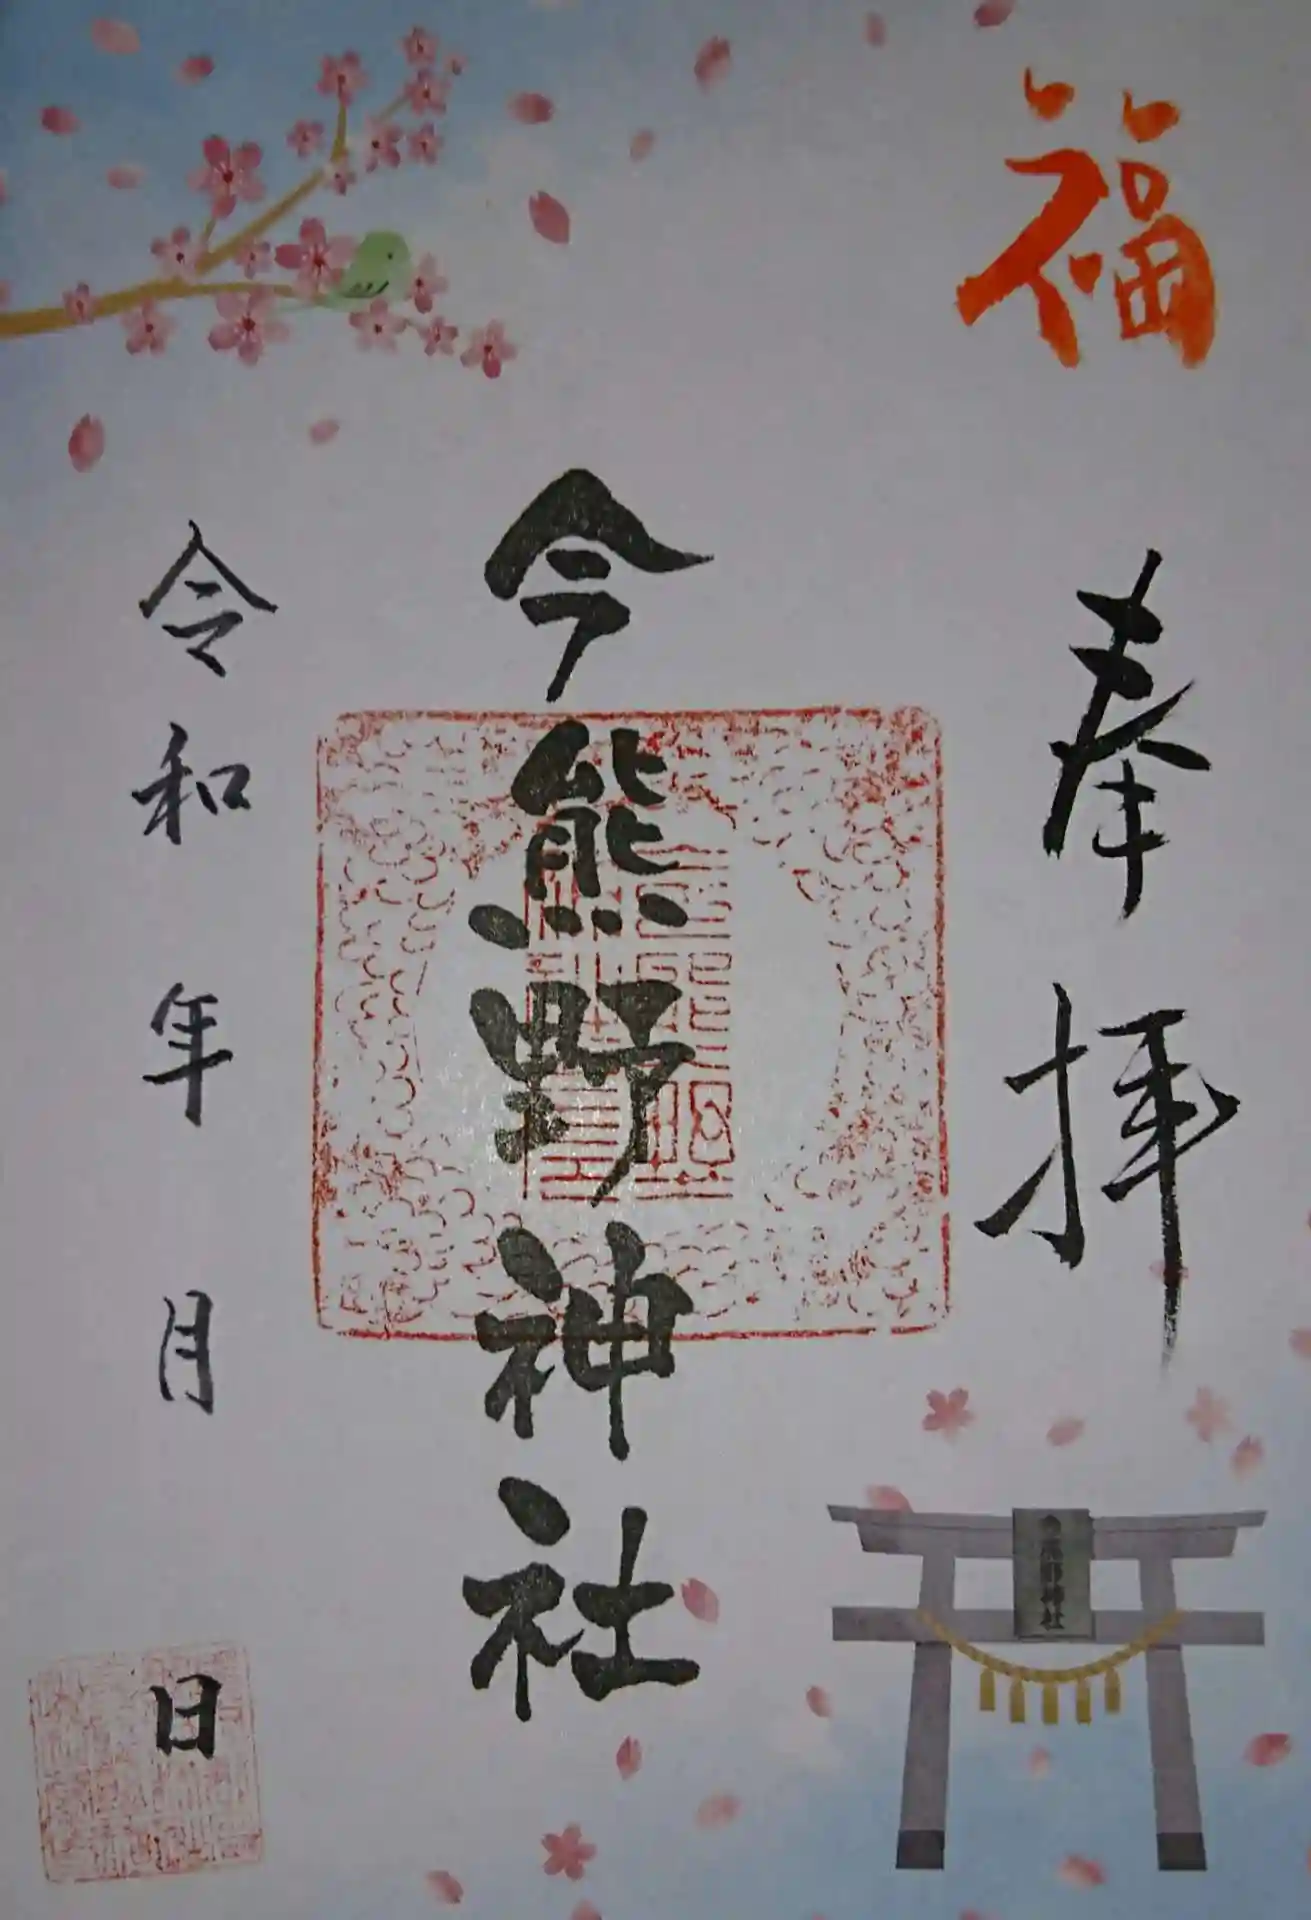 福
奉拝
今熊野神社
令和 年 月 日
今熊野神社